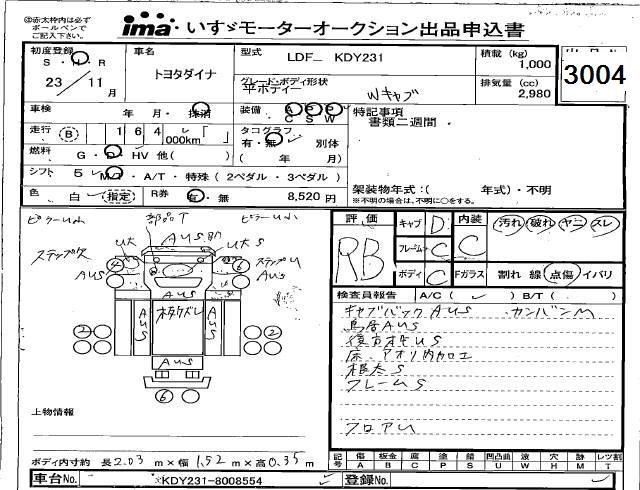 ◎赤太枠内は必ず
ボールペンで
ご記入下さい。
ima いすゞモーターオークション出品申込書
初度登録
S・H・R
23 / 11 月
車名
トヨタダイナ
型式
LDF_ KDY231
グレード・ボディ形状
平ボディー
Wキャブ
積載 (kg)
1,000
排気量 (cc)
2,980
3004
車検
年 月・抹消
装備 A P P
C S W
特記事項
書類二週間・
走行 (B) 1 6 4
000km
タコグラフ
有・無 別体
( 年 月)
燃料 G・D・HV 他( )
シフト 5 MT・A/T・特殊 (2ペダル・3ペダル)
架装物年式:( 年式)・不明
※架装物の場合は、不明に○をする。
色 白 (指定) R券 有・無 8,520 円
ピラーU小
部品T
ピラーU小
ステップ欠
UK
AUS
UKS
ステップU
AUS
AUS
AUS
AUS
AUS
AUS
2
2
6
上物情報
ボディ内寸約 長 2.03 m × 幅 1.52 m × 高 0.35 m
評価
RB
キャブ D
フレーム C
ボディ C
内装
C
汚れ 破れ ヤニ スレ
Fガラス 割れ 線 点傷 イバリ
検査員報告 A/C ( ✓ ) B/T ( . )
キャブバックAUS カンバンM
鳥居AUS
後方オモUS
床、アオリ内カロエ
根太S
フレームS
フロアU
記号 傷 板金 腐 塗 錆 凹凸曲 液 穴 跡 レツ割
A B C P S U W H M T
車台No. *KDY231-8008554
登録No.